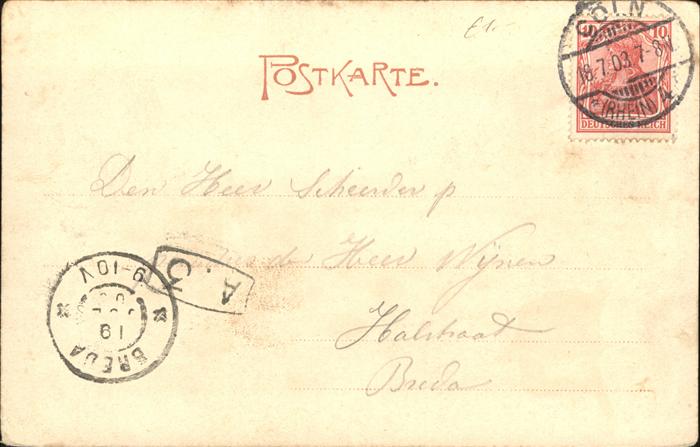 £1.-
POSTKARTE.
CÖLN
18.7.03.7-8V
* (RHEIN) 4
10
DEUTSCHES REICH
Den Heer Scheerder p
de Heer Wijnen
Halstraat
Breda
A.
BREDA
19
9-10V